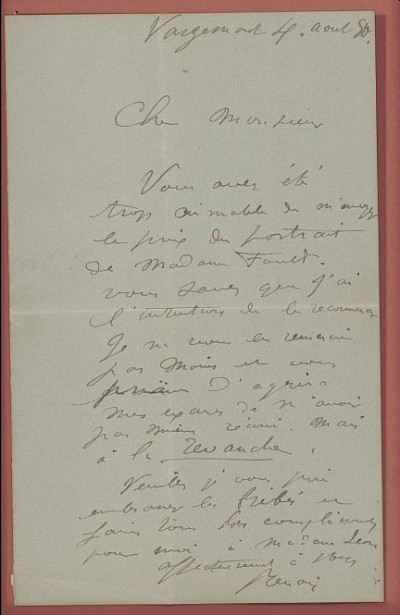 Vargemont 4. aout 80.
Cher Monsieur
Vous avez été
trop aimable de m'envoyer
le prix du portrait
de Madame
vous savez que j'ai
l'intention de le recommencer
Je ne vous en remercie
pas moins et vous
prie d'agréer
mes excuses de n'avoir
pas mieux réussi. Mais
à la revanche.
Veuillez je vous prie
embrasser les bébés et
faire tous les compliments
pour moi à Madame
affectueusement à vous
Renoir